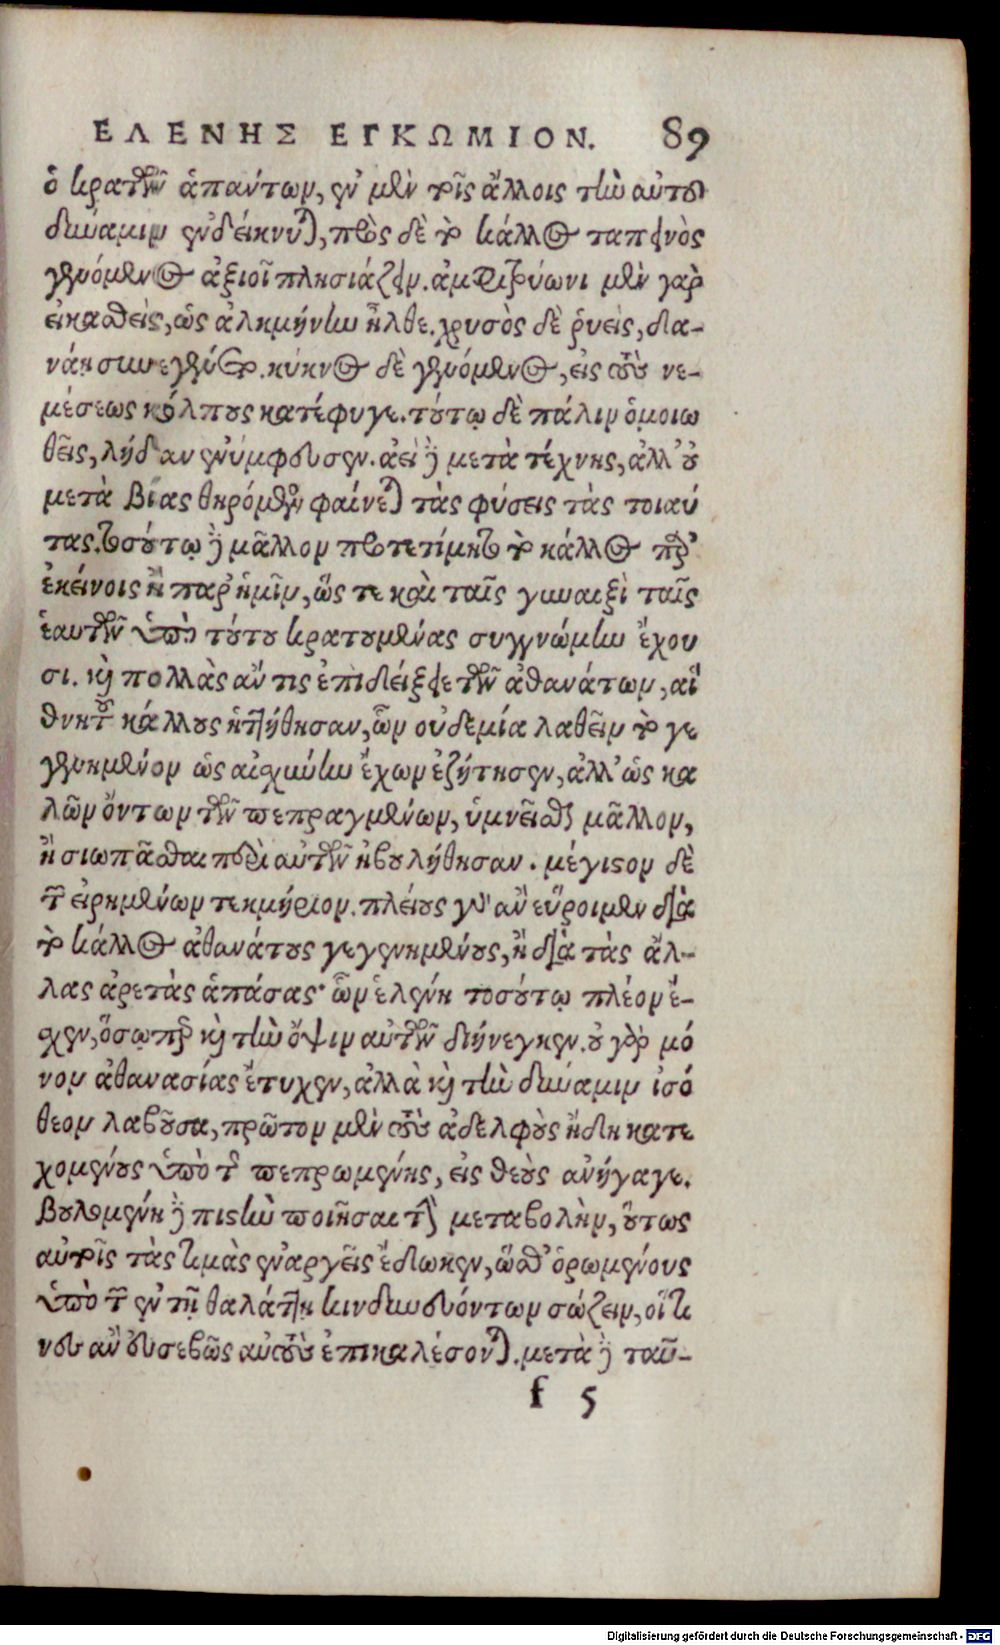 ΕΛΕΝΗΣ ΕΓΚΩΜΙΟΝ. 89
ὁ κρατῶν ἁπάντων, ἐν μὲν τοῖς ἄλλοις τὴν αὑτοῦ
δύναμιν ἐνδείκνυται, πρὸς δὲ τὸ κάλλος ταπεινὸς
γενόμενος ἀξιοῖ πλησιάζειν. ἀμφιτρύωνι μὲν γὰρ
εἰκασθείς, ὡς ἀλκμήνην ἦλθε. χρυσὸς δὲ ῥυείς, δα-
νάῃ συνεγένετο. κύκνος δὲ γενόμενος, εἰς τοὺς νε-
μέσεως κόλπους κατέφυγε. τούτῳ δὲ πάλιν ὁμοιω
θεῖς, λήδαν ἐνύμφευσεν. ἀεὶ δὲ μετὰ τέχνης, ἀλλ' οὐ
μετὰ βίας θηρώμενος φαίνεται τὰς φύσεις τὰς τοιαύ
τας. τοσούτῳ δὲ μᾶλλον προτετίμηται τὸ κάλλος παρ'
ἐκείνοις ἢ παρ' ἡμῖν, ὥς τε καὶ ταῖς γυναιξὶ ταῖς
ἑαυτῶν ὑπὸ τούτου κρατουμένας συγγνώμην ἔχου
σι. καὶ πολλὰς ἄν τις ἐπιδείξειε τῶν ἀθανάτων, αἳ
θνητοῦ κάλλους ἡττήθησαν, ὧν οὐδεμία λαθεῖν τὸ γε
γενημένον ὡς αἰσχύνην ἔχων ἐζήτησεν, ἀλλ' ὡς κα
λῶν ὄντων τῶν πεπραγμένων, ὑμνεῖσθαι μᾶλλον,
ἢ σιωπᾶσθαι περὶ αὐτῶν ἠβουλήθησαν. μέγιστον δὲ
τῶν εἰρημένων τεκμήριον. πλείους γὰρ ἂν εὕροιμεν διὰ
τὸ κάλλος ἀθανάτους γεγενημένους, ἢ διὰ τὰς ἄλ-
λας ἀρετὰς ἁπάσας· ὧν ἑλένη τοσούτῳ πλέον ἔ-
σχεν, ὅσῳπερ καὶ τὴν ὄψιν αὐτῶν διήνεγκεν. οὐ γὰρ μό
νον ἀθανασίας ἔτυχεν, ἀλλὰ καὶ τὴν δύναμιν ἰσό
θεον λαβοῦσα, πρῶτον μὲν τοὺς ἀδελφοὺς ἤδη κατε
χομένους ὑπὸ τῆς πεπρωμένης, εἰς θεοὺς ἀνήγαγε.
βουλομένη δὲ πιστὴν ποιῆσαι τὴν μεταβολὴν, οὕτως
αὐτοῖς τὰς τιμὰς ἐναργεῖς ἔδωκεν, ὥσθ' ὁρωμένους
ὑπὸ τῶν ἐν τῇ θαλάττῃ κινδυνευόντων σώζειν, οἵ τι
νες ἂν εὐσεβῶς αὐτοὺς ἐπικαλέσονται. μετὰ δὲ ταῦ-
f 5
Digitalisierung gefördert durch die Deutsche Forschungsgemeinschaft - DFG